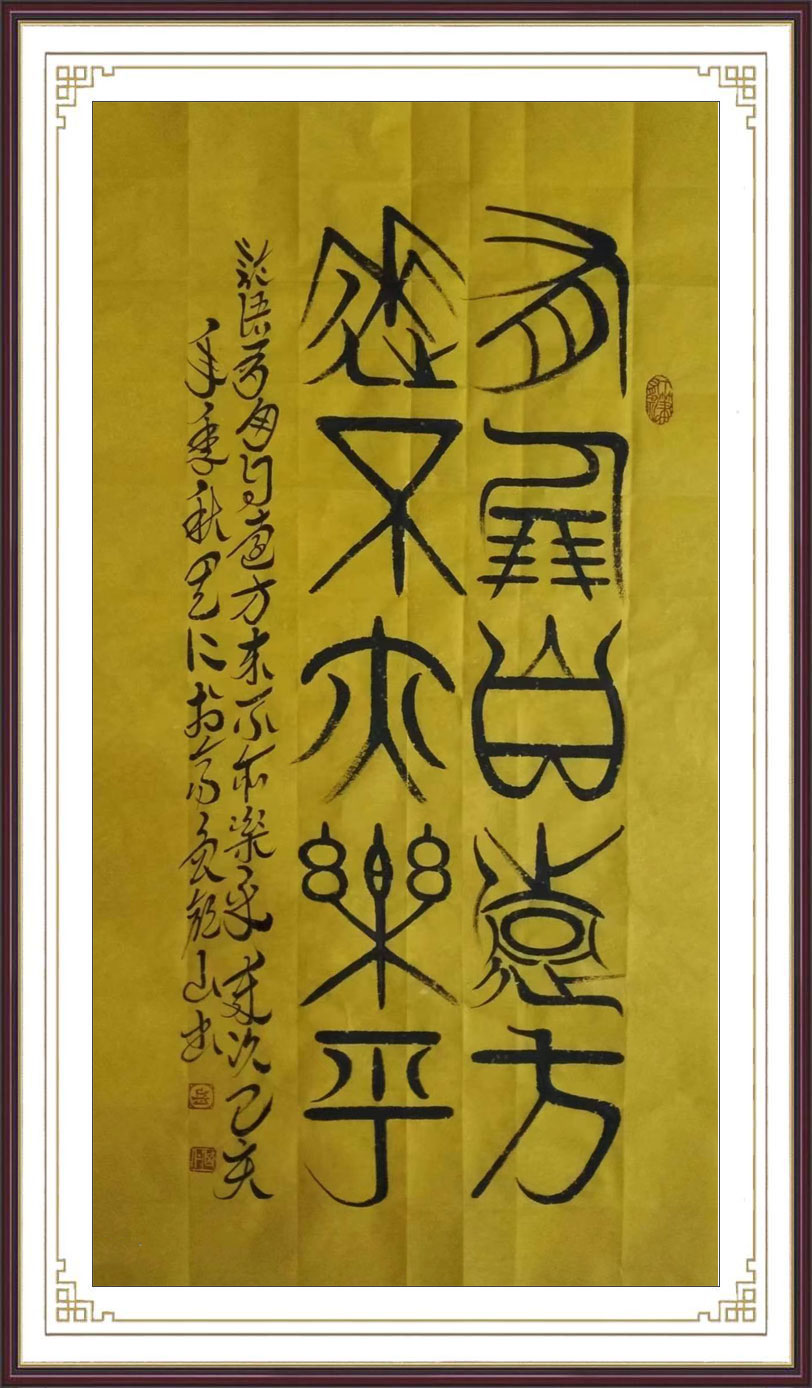 有朋自遠方
來不亦樂乎
論語有朋自遠方来不亦樂乎歲次己亥
年季秋於山書